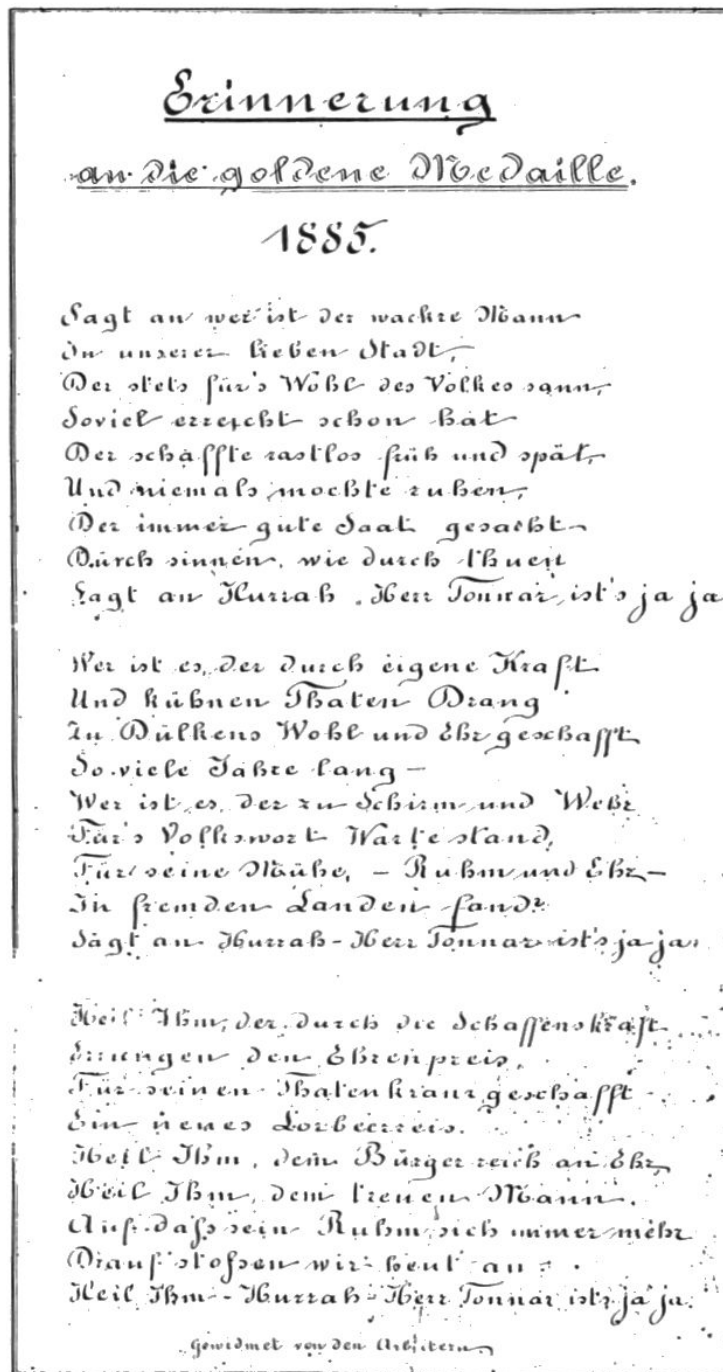 Erinnerung
an die goldene Medaille.
1885.
Sagt an wer ist der wackre Mann
In unserer lieben Stadt,
Der stets für's Wohl des Volkes sann,
Soviel erreicht schon hat
Der schaffte rastlos früh und spät,
Und niemals mochte ruhen,
Der immer gute Saat gesaeht
Durch sinnen, wie durch thuen
Sagt an Hurrah, Herr Tonnar, ist's ja ja
Wer ist es, der durch eigene Kraft
Und kühnen Thaten Drang
Zu Dülkens Wohl und Ehr geschafft
So viele Jahre lang –
Wer ist es, der zu Schirm und Wehr
Für's Volkswort Warte stand,
Für seine Mühe, – Ruhm und Ehr –
In fremden Landen fand?
Sagt an Hurrah – Herr Tonnar ist's ja ja.
Heil Ihm, der durch die Schaffenskraft
Errungen den Ehrenpreis,
Für seinen Thatenkranz geschafft
Ein neues Lorbeerreis.
Heil Ihm, dem Bürger reich an Ehr,
Heil Ihm, dem treuen Mann.
Auf daß sein Ruhm sich immer mehr
Drauf stoßen wir heut an –
Heil Ihm – Hurrah – Herr Tonnar ist's ja ja.
Gewidmet von den Arbeitern